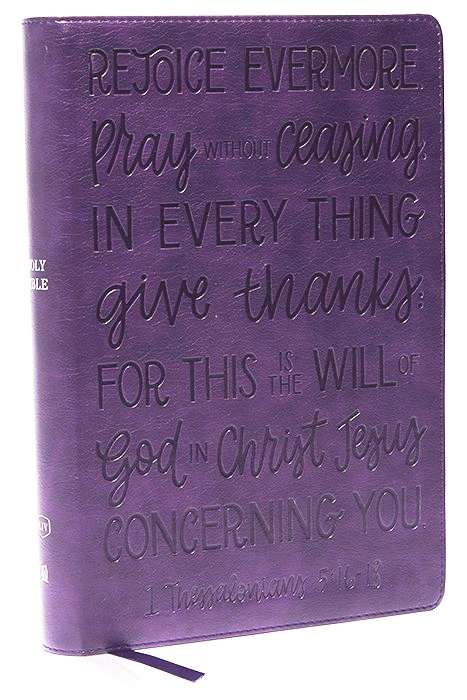 REJOICE EVERMORE.
Pray WITHOUT ceasing.
IN EVERY THING
give thanks:
FOR THIS IS THE WILL OF
God IN Christ Jesus
CONCERNING YOU.
1 Thessalonians 5:16-18
HOLY
BIBLE
KJV